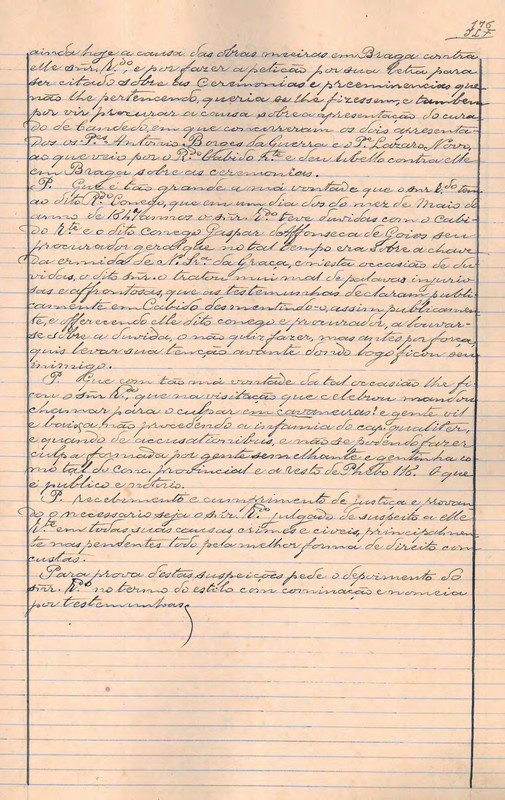 176
ainda hoje a causa das obras meeiras em Braga contra
elle snr. R.do, e por fazer a petição por sua letra para
ser citado sobre as Ceremonias e preeminencias que
não lhe pertencendo, queria se lhe fizessem, e tambem
por vir procurar a causa sobre a apresentação do cura-
do de Candedo, em que concorreram os dois apresenta-
dos os P.es Antonio Borges da Guerra e o P.e Lazaro Novo,
ao que veio por o R.do Cabido R.te e deu libello contra elle
em Braga sobre as ceremonias.
P. Que é tão grande a má vontade que o snr R.do tem
ao dito R.do Conego, que em um dia dos do mez de Maio do
anno de annos o snr. R.do teve duvidas com o Cabi-
do R.te e o dito conego Gaspar d'Affonseca de Goios seu
procurador geral que no tal tempo era sobre a chave
da ermida de N. Sr.a da Graça, e n'esta occasião de du-
vidas, o dito snr. o tratou mui mal de palavras injurio-
sas e affrontosas, que as testemunhas declaram, publi-
camente em Cabido desmentindo-o, assim publicamen-
te, e offerecendo elle dito conego e procurador, a louvar-
se sobre a duvida, o não quiz fazer, mas antes por força,
quis levar sua tenção avante donde logo ficou seu
inimigo.
P. Que com tão má vontade da tal occasião lhe fi-
cou o snr R.do, que na visitação que celebrou mandou
chamar para o culpar em e gente vil
e baixa, não procedendo a infamia de cap. qualiter,
e quando de accusationibus, e não se podendo fazer
culpa formada por gente semelhante e gentinha co-
mo tal do Conc. provincial e a resto de Phebo O que
é publico e notorio.
P. recebimento e cumprimento de justiça e provan-
do o necessario seja o snr. R.do julgado de suspeito a elle
R.te em todas suas causas crimes e civeis, principalmen-
te nas pendentes todo pela melhor forma de direito com
custas.
Para prova destas suspeições pede o depoimento do
snr. R.do no termo do estilo com cominação e nomeia
por testemunhas